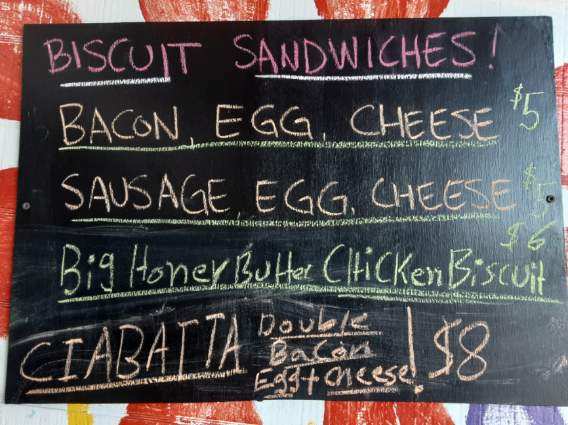 BISCUIT SANDWICHES!
BACON, EGG, CHEESE $5
SAUSAGE, EGG, CHEESE $5
$6
Big Honey Butter CHiCKen BiscUit
CIABATTA Double Bacon Egg + cheese! $8